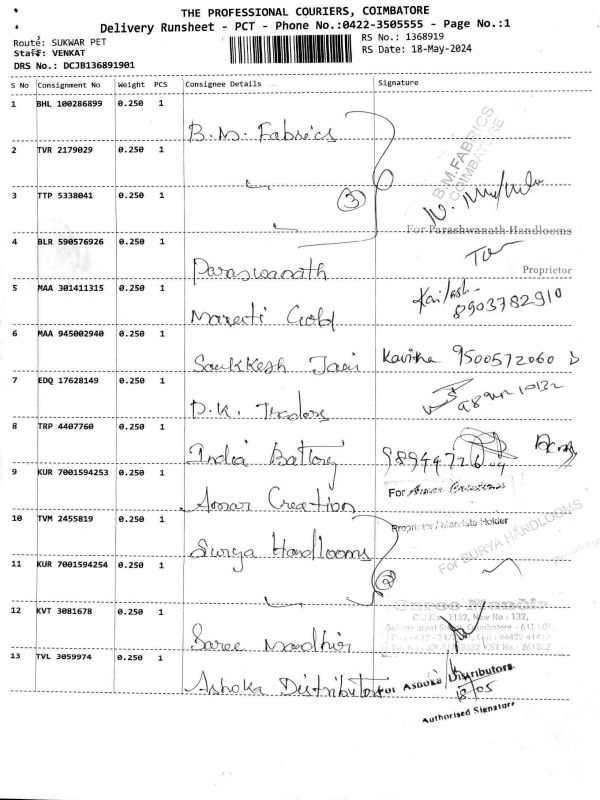 THE PROFESSIONAL COURIERS, COIMBATORE
Delivery Runsheet - PCT - Phone No.:0422-3505555 - Page No.:1
Route: SUKWAR PET
RS No.: 1368919
Staff: VENKAT
RS Date: 18-May-2024
DRS No.: DCJB136891901
S No Consignment No Weight PCS Consignee Details Signature
1 BHL 100286899 0.250 1
B.M. Fabrics
B.M.FABRICS
COIMBATORE
2 TVR 2179029 0.250 1
3 TTP 5338041 0.250 1
3
For Parashwanath Handlooms
4 BLR 590576926 0.250 1
Paraswanath
Proprietor
5 MAA 301411315 0.250 1
Kailash
8903782910
Maruti Gold
6 MAA 945002940 0.250 1
Kavitha 9500572060
7 EDQ 17628149 0.250 1
D.K. Traders
8 TRP 4407760 0.250 1
India Battery
9 KUR 7001594253 0.250 1
For Amar Creations
Amar Creation
10 TVM 2455819 0.250 1
Surya Handlooms
For SURYA HANDLOOMS
Proprietor
11 KUR 7001594254 0.250 1
2
12 KVT 3081678 0.250 1
Saree Mandhir
Saree Mandir
13 TVL 3059974 0.250 1
Ashoka Distributor
For Ashoka Distributors
18/05
Authorised Signatory